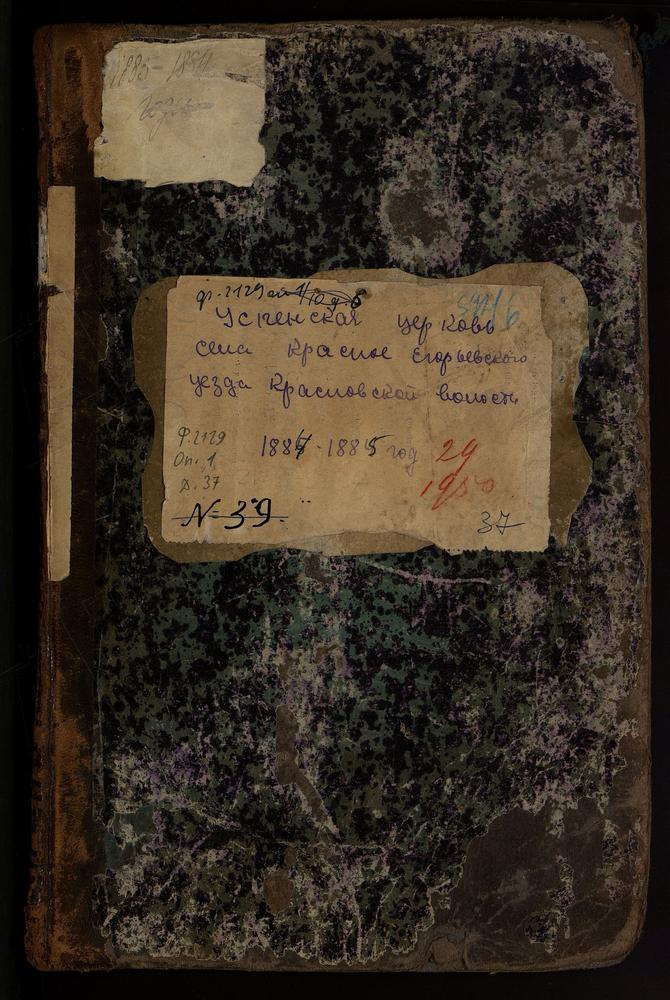 1885-1894
года
ф. 2129 оп 1/10 д. 6
Успенская церковь
села Красное Егорьевского
уезда Красновской волости
Ф. 2129
Оп. 1
Д. 37
1884-1885 год
29
1950
N=39.
37